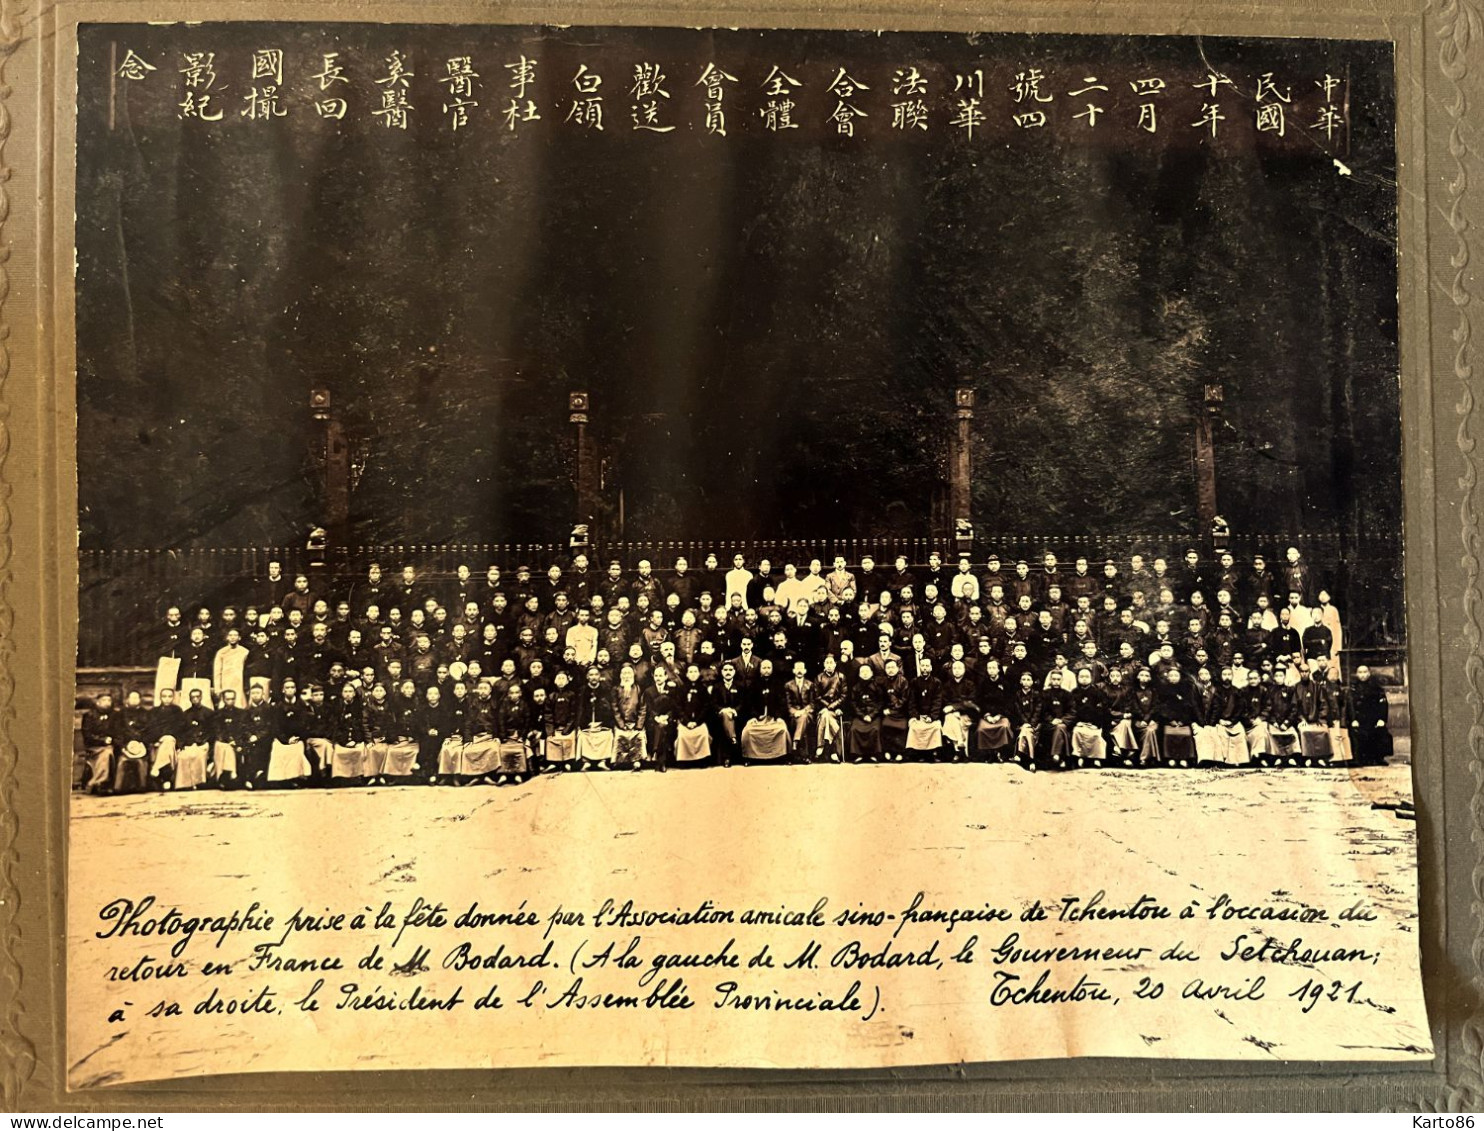 中華民國十年四月二十號四川華法聯合會全體會員歡送白領事杜醫官奚醫長回國撮影紀念
Photographie prise à la fête donnée par l'Association amicale sino-française de Tchentou à l'occasion du
retour en France de M Bodard. (A la gauche de M. Bodard, le Gouverneur du Setchouan;
à sa droite, le Président de l'Assemblée Provinciale). Tchentou, 20 Avril 1921
Karto86